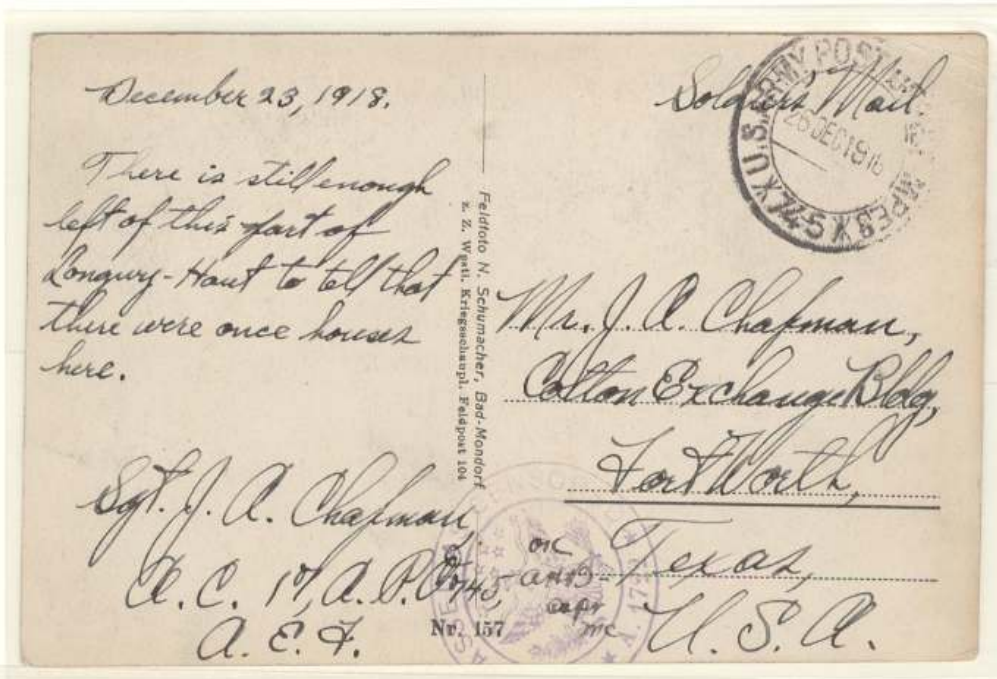 December 23, 1918.
There is still enough
left of this part of
Longwy-Haut to tell that
there were once houses
here.
Sgt. J. A. Chapman,
A.P.O. 745,
A. E. F.
Feldfoto N. Schumacher, Bad-Mondorf
z. Z. Westl. Kriegsschaupl. Feldpost 104
Nr. 157
Soldiers Mail
U.S. ARMY POST
26 DEC 1918
Mr. J. A. Chapman,
Cotton Exchange Bldg,
Fort Worth,
Texas,
U. S. A.
OK
Capt
PASSED
CENSOR
A.